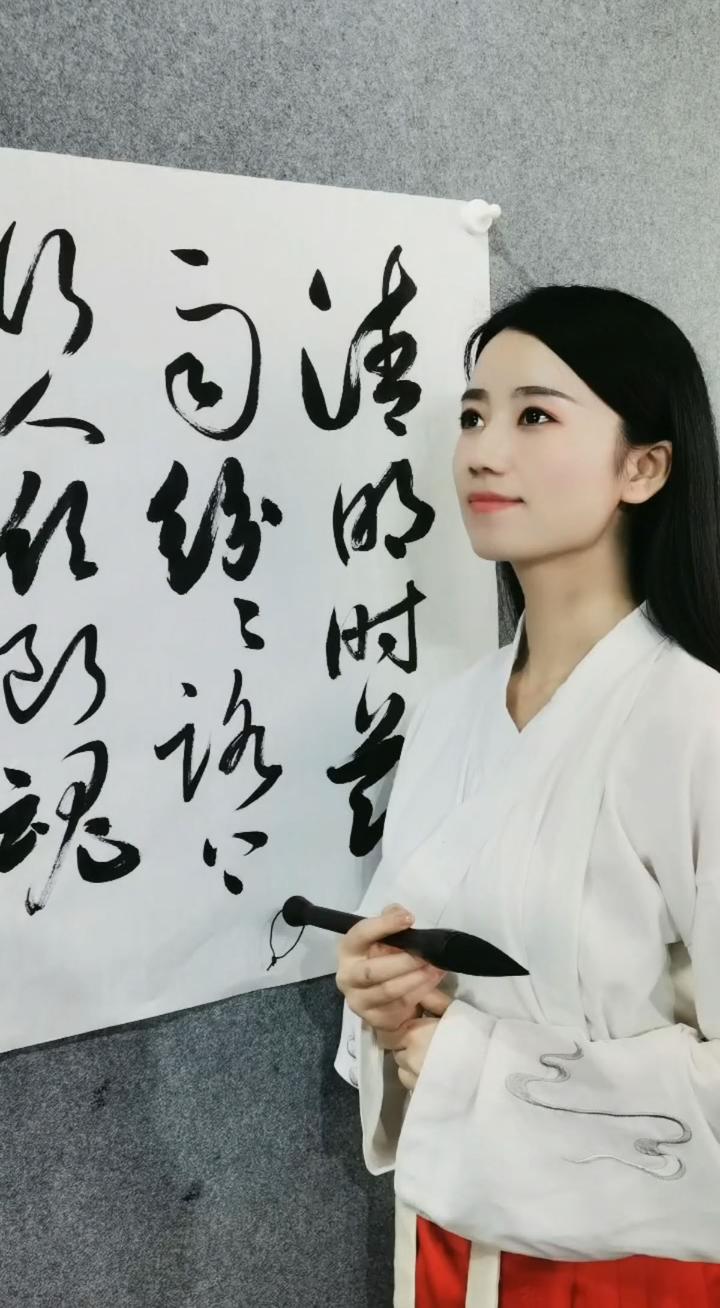 清明时节
雨纷纷路上
行人欲断魂